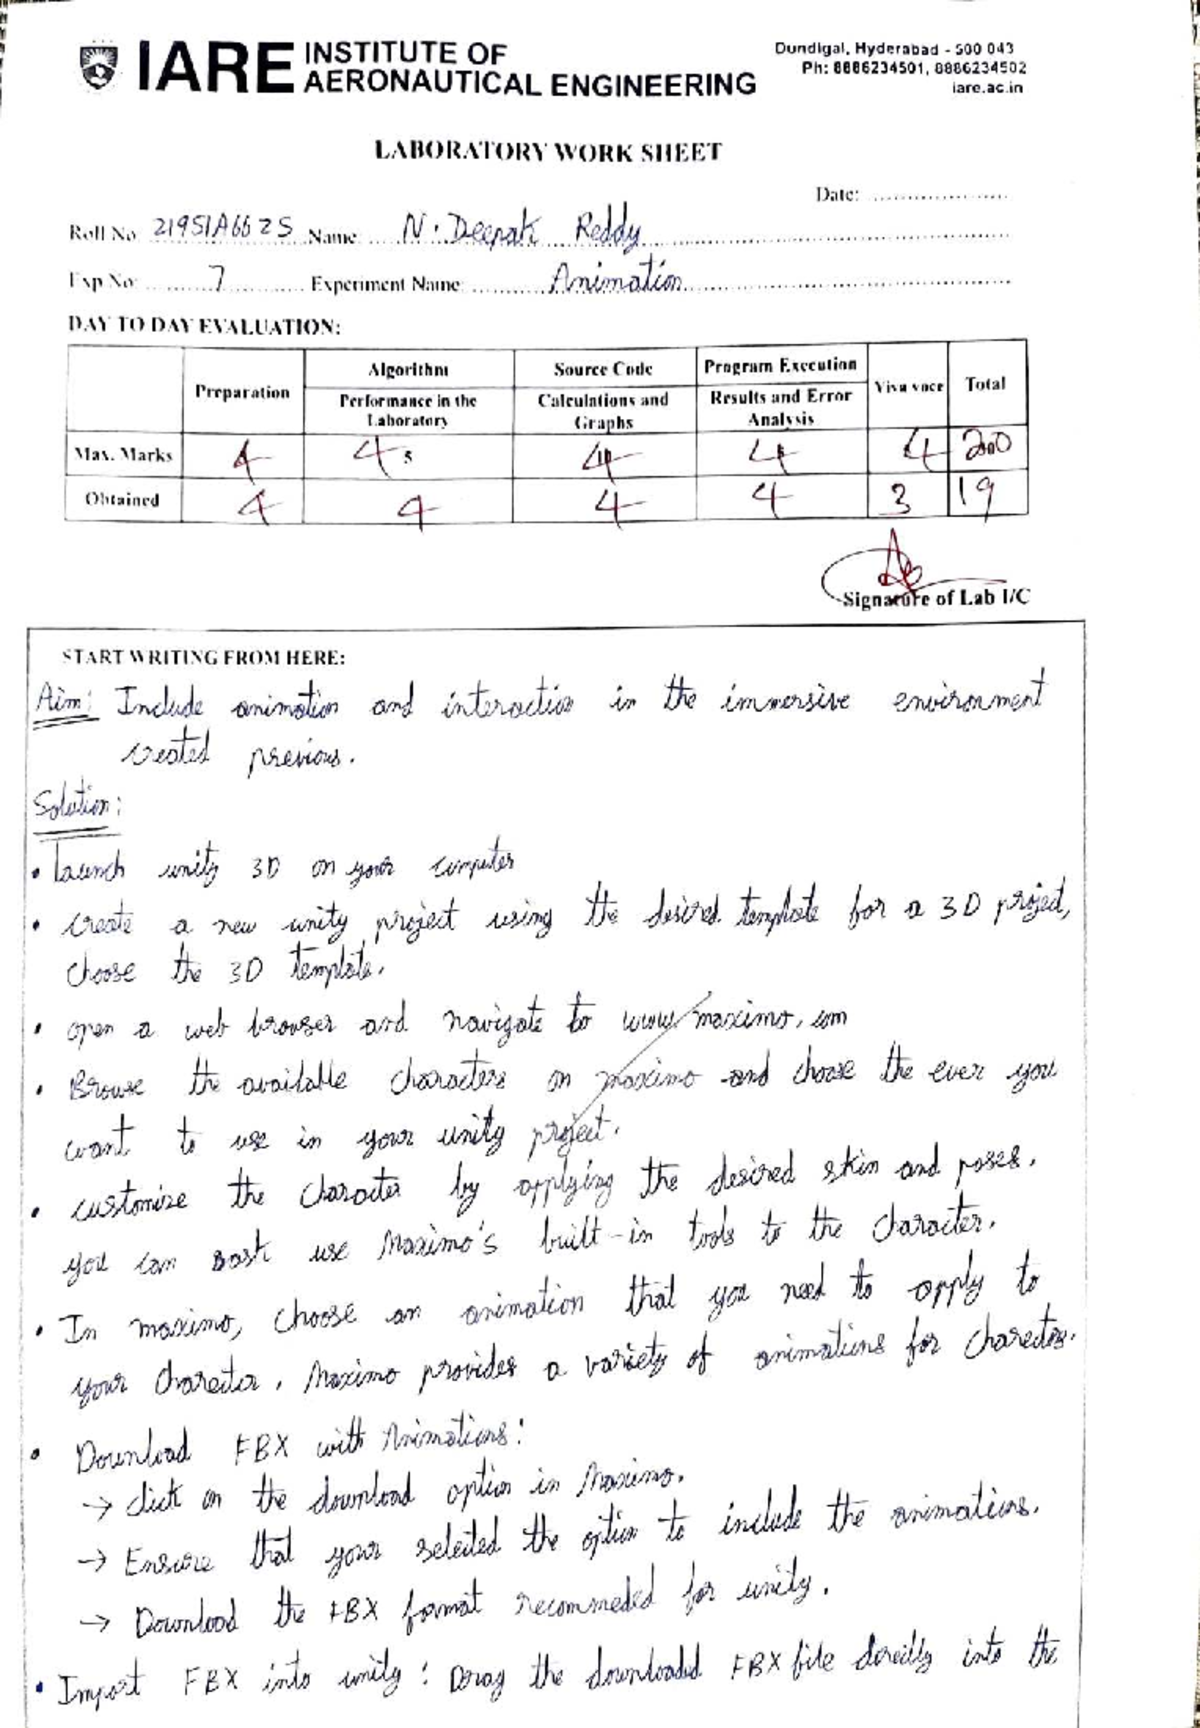 IARE INSTITUTE OF
AERONAUTICAL ENGINEERING
Dundigal, Hyderabad - 500 043
Ph: 8886234501, 8886234502
iare.ac.in
LABORATORY WORK SHEET
Date: ........................
Roll No 21951A6625 Name N. Deepak Reddy
Exp No: 7 Experiment Name: Animation
DAY TO DAY EVALUATION:
Preparation
Algorithm
Performance in the
Laboratory
Source Code
Calculations and
Graphs
Program Execution
Results and Error
Analysis
Viva voce
Total
Max. Marks 4 4 4 4 4 20
Obtained 4 4 4 4 3 19
Signature of Lab I/C
START WRITING FROM HERE:
Aim: Include animation and interaction in the immersive environment
created previous.
Solution:
• Launch unity 3D on your computer
• create a new unity project using the desired template for a 3D project,
choose the 3D template.
• open a web browser and navigate to www.maximo.com
• Browse the available characters on maximo and choose the ever you
want to use in your unity project.
• customize the character by applying the desired skin and poses.
you can use Maximo's built-in tools to the character.
• In maximo, choose an animation that you need to apply to
your charecter. Maximo provides a variety of animations for charectes.
• Download FBX with Animations:
→ click on the download option in Maximo.
→ Ensure that your selected the option to include the animations.
→ Download the FBX format recommeded for unity.
• Import FBX into unity: Drag the downloaded FBX file direclly into the